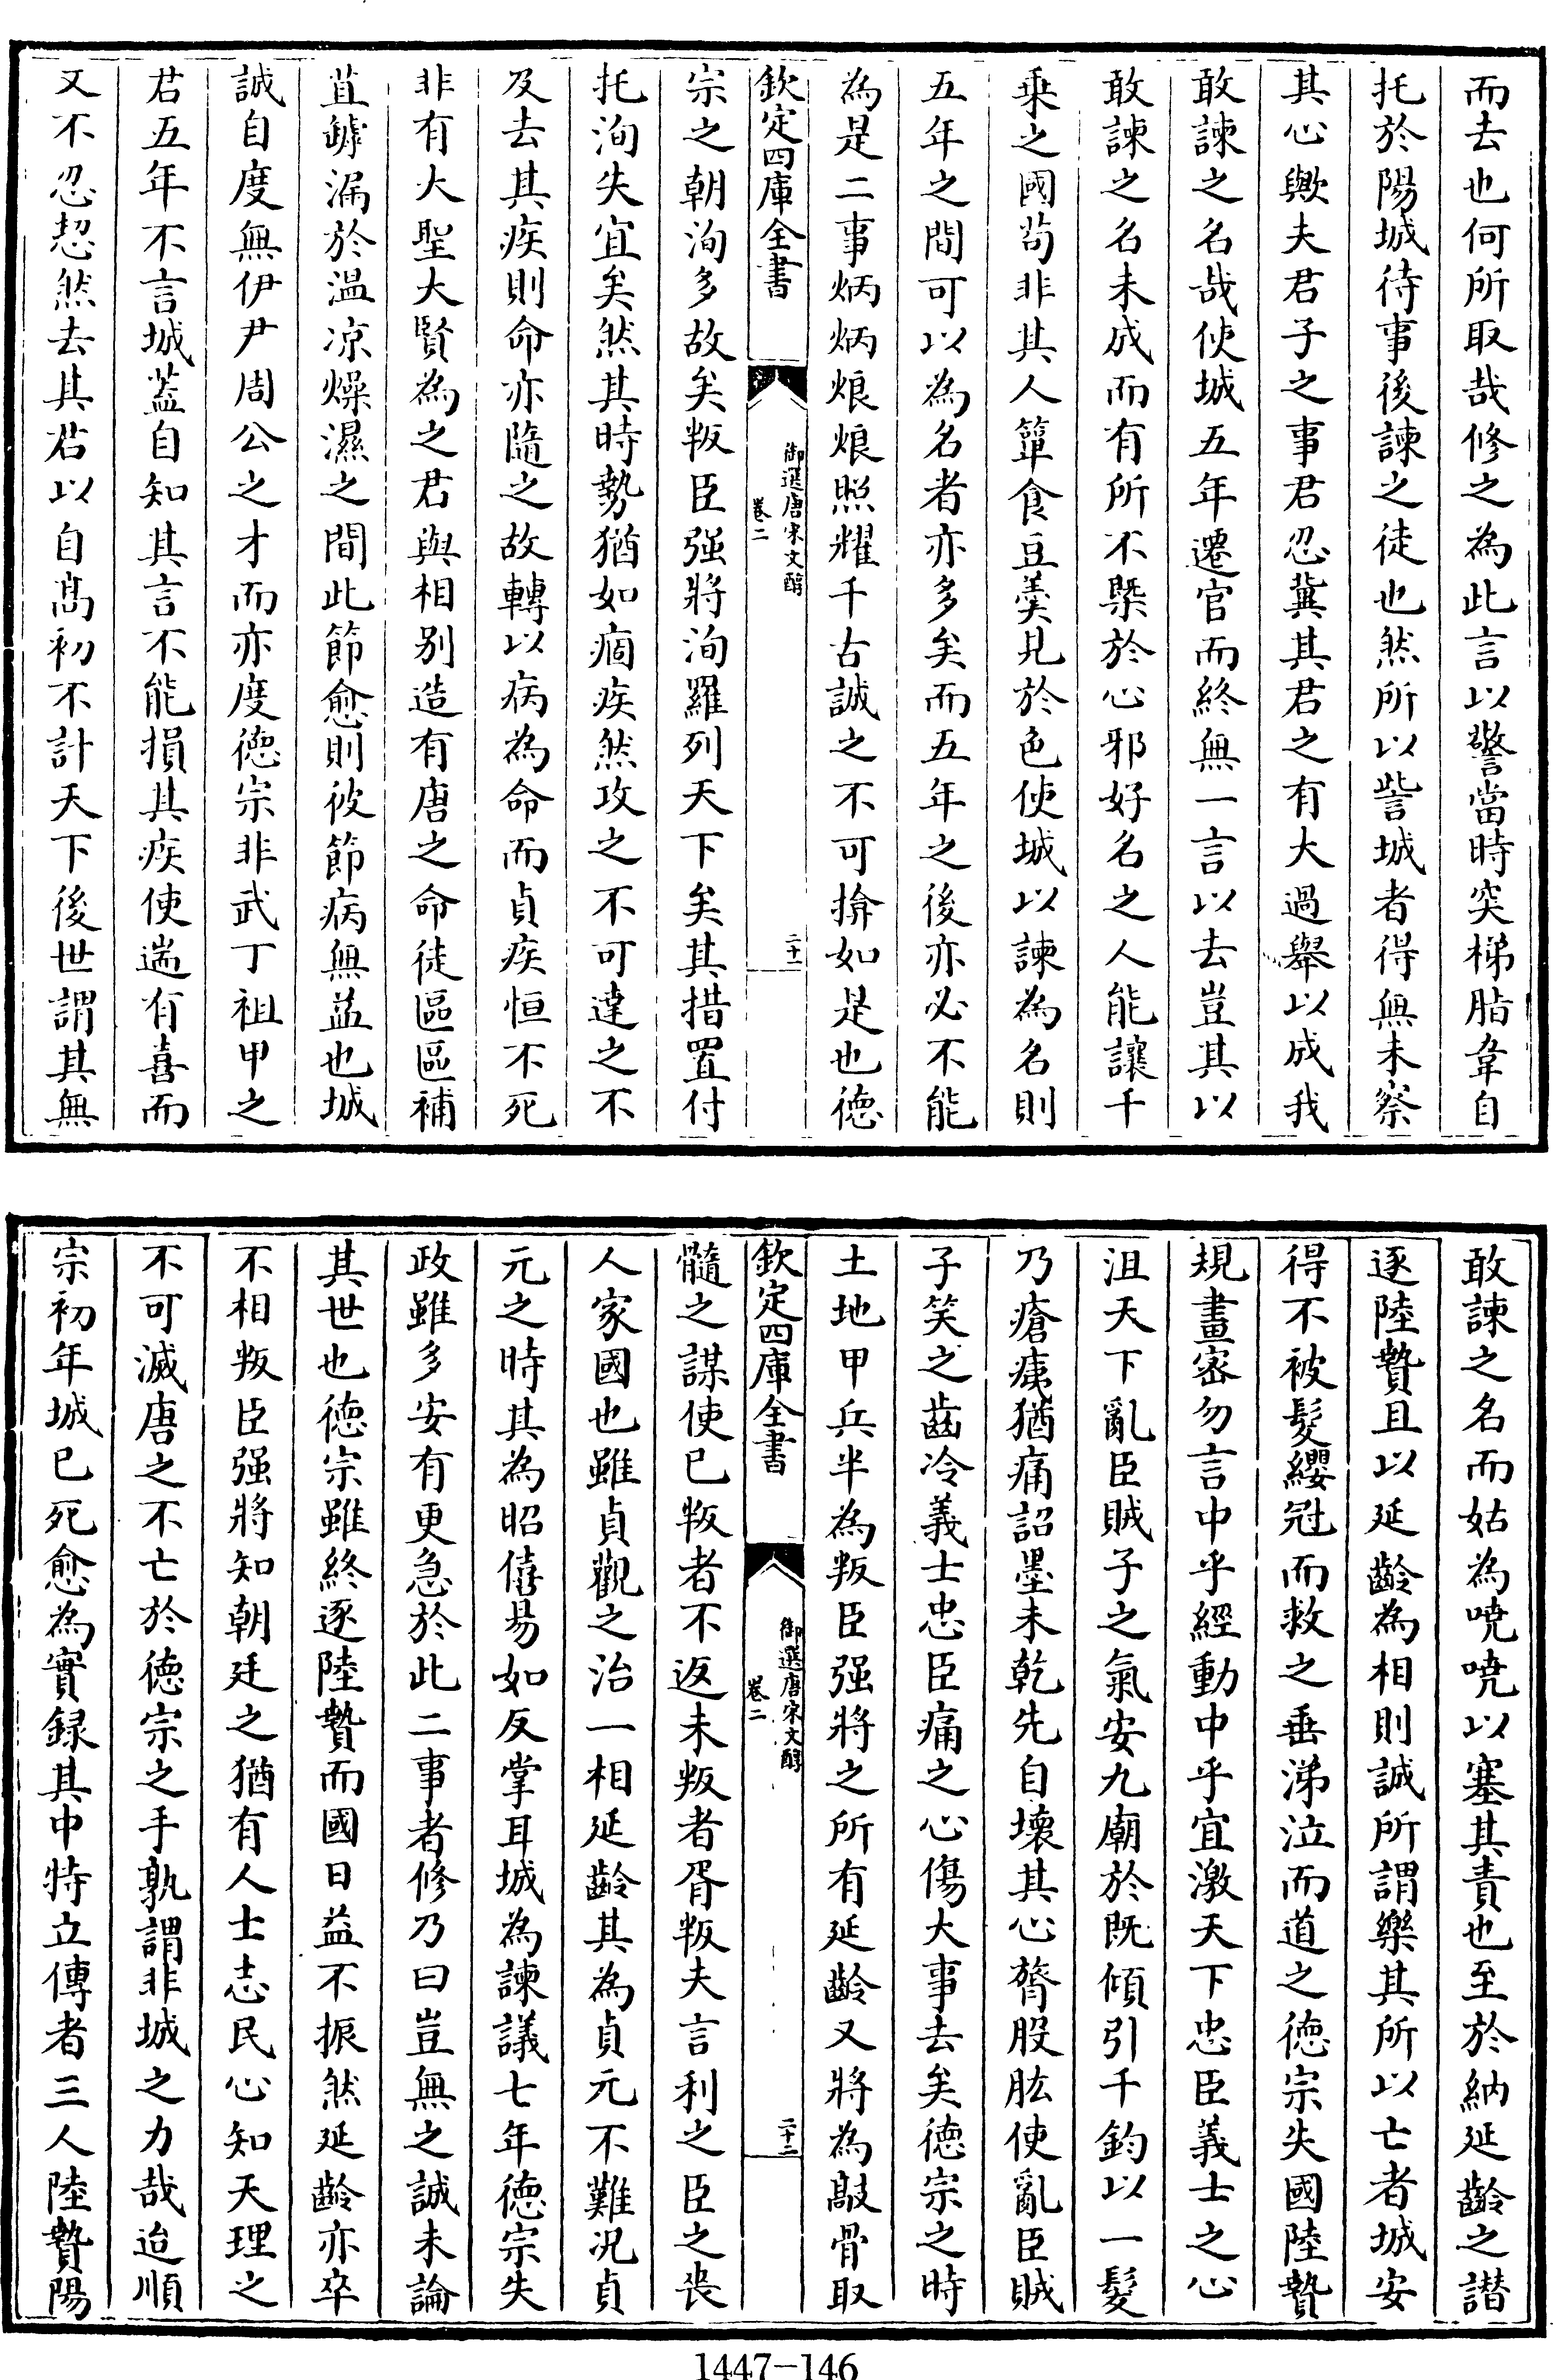 而去也何所取哉修之為此言以警當時突梯脂韋自
托於陽城待事後諫之徒也然所以訾城者得無未察
其心歟夫君子之事君忍冀其君之有大過舉以成我
敢諫之名哉使城五年遷官而終無一言以去豈其以
敢諫之名未成而有所不槩於心邪好名之人能讓千
乗之國苟非其人簞食豆羮見於色使城以諫為名則
五年之間可以為名者亦多矣而五年之後亦必不能
為是二事炳炳烺烺照耀千古誠之不可揜如是也德
欽定四庫全書
御選唐宋文醇
卷二
二十一
宗之朝洵多故矣叛臣强將洵羅列天下矣其措置付
托洵失宜矣然其時勢猶如痼疾然攻之不可達之不
及去其疾則命亦隨之故轉以病為命而貞疾恒不死
非有大聖大賢為之君與相别造有唐之命徒區區補
苴罅漏於温凉燥濕之間此節愈則彼節病無益也城
誠自度無伊尹周公之才而亦度德宗非武丁祖甲之
君五年不言城蓋自知其言不能損其疾使遄有喜而
又不忍恝然去其君以自髙初不計天下後世謂其無
敢諫之名而姑為嘵嘵以塞其責也至於納延齡之譖
逐陸贄且以延齡為相則誠所謂樂其所以亡者城安
得不被髮纓冠而救之垂涕泣而道之德宗失國陸贄
規畫密勿言中乎經動中乎宜激天下忠臣義士之心
沮天下亂臣賊子之氣安九廟於既傾引千鈞以一髮
乃瘡痍猶痛詔墨未乾先自壞其心膂股肱使亂臣賊
子笑之齒冷義士忠臣痛之心傷大事去矣德宗之時
土地甲兵半為叛臣强將之所有延齡又將為敲骨取
欽定四庫全書
御選唐宋文醇
卷二
二十二
髓之謀使已叛者不返未叛者胥叛夫言利之臣之喪
人家國也雖貞觀之治一相延齡其為貞元不難况貞
元之時其為昭僖易如反掌耳城為諫議七年德宗失
政雖多安有更急於此二事者修乃曰豈無之誠未論
其世也德宗雖終逐陸贄而國日益不振然延齡亦卒
不相叛臣强將知朝廷之猶有人士志民心知天理之
不可滅唐之不亡於德宗之手孰謂非城之力哉迨順
宗初年城已死愈為實録其中特立傳者三人陸贄陽
1447-146